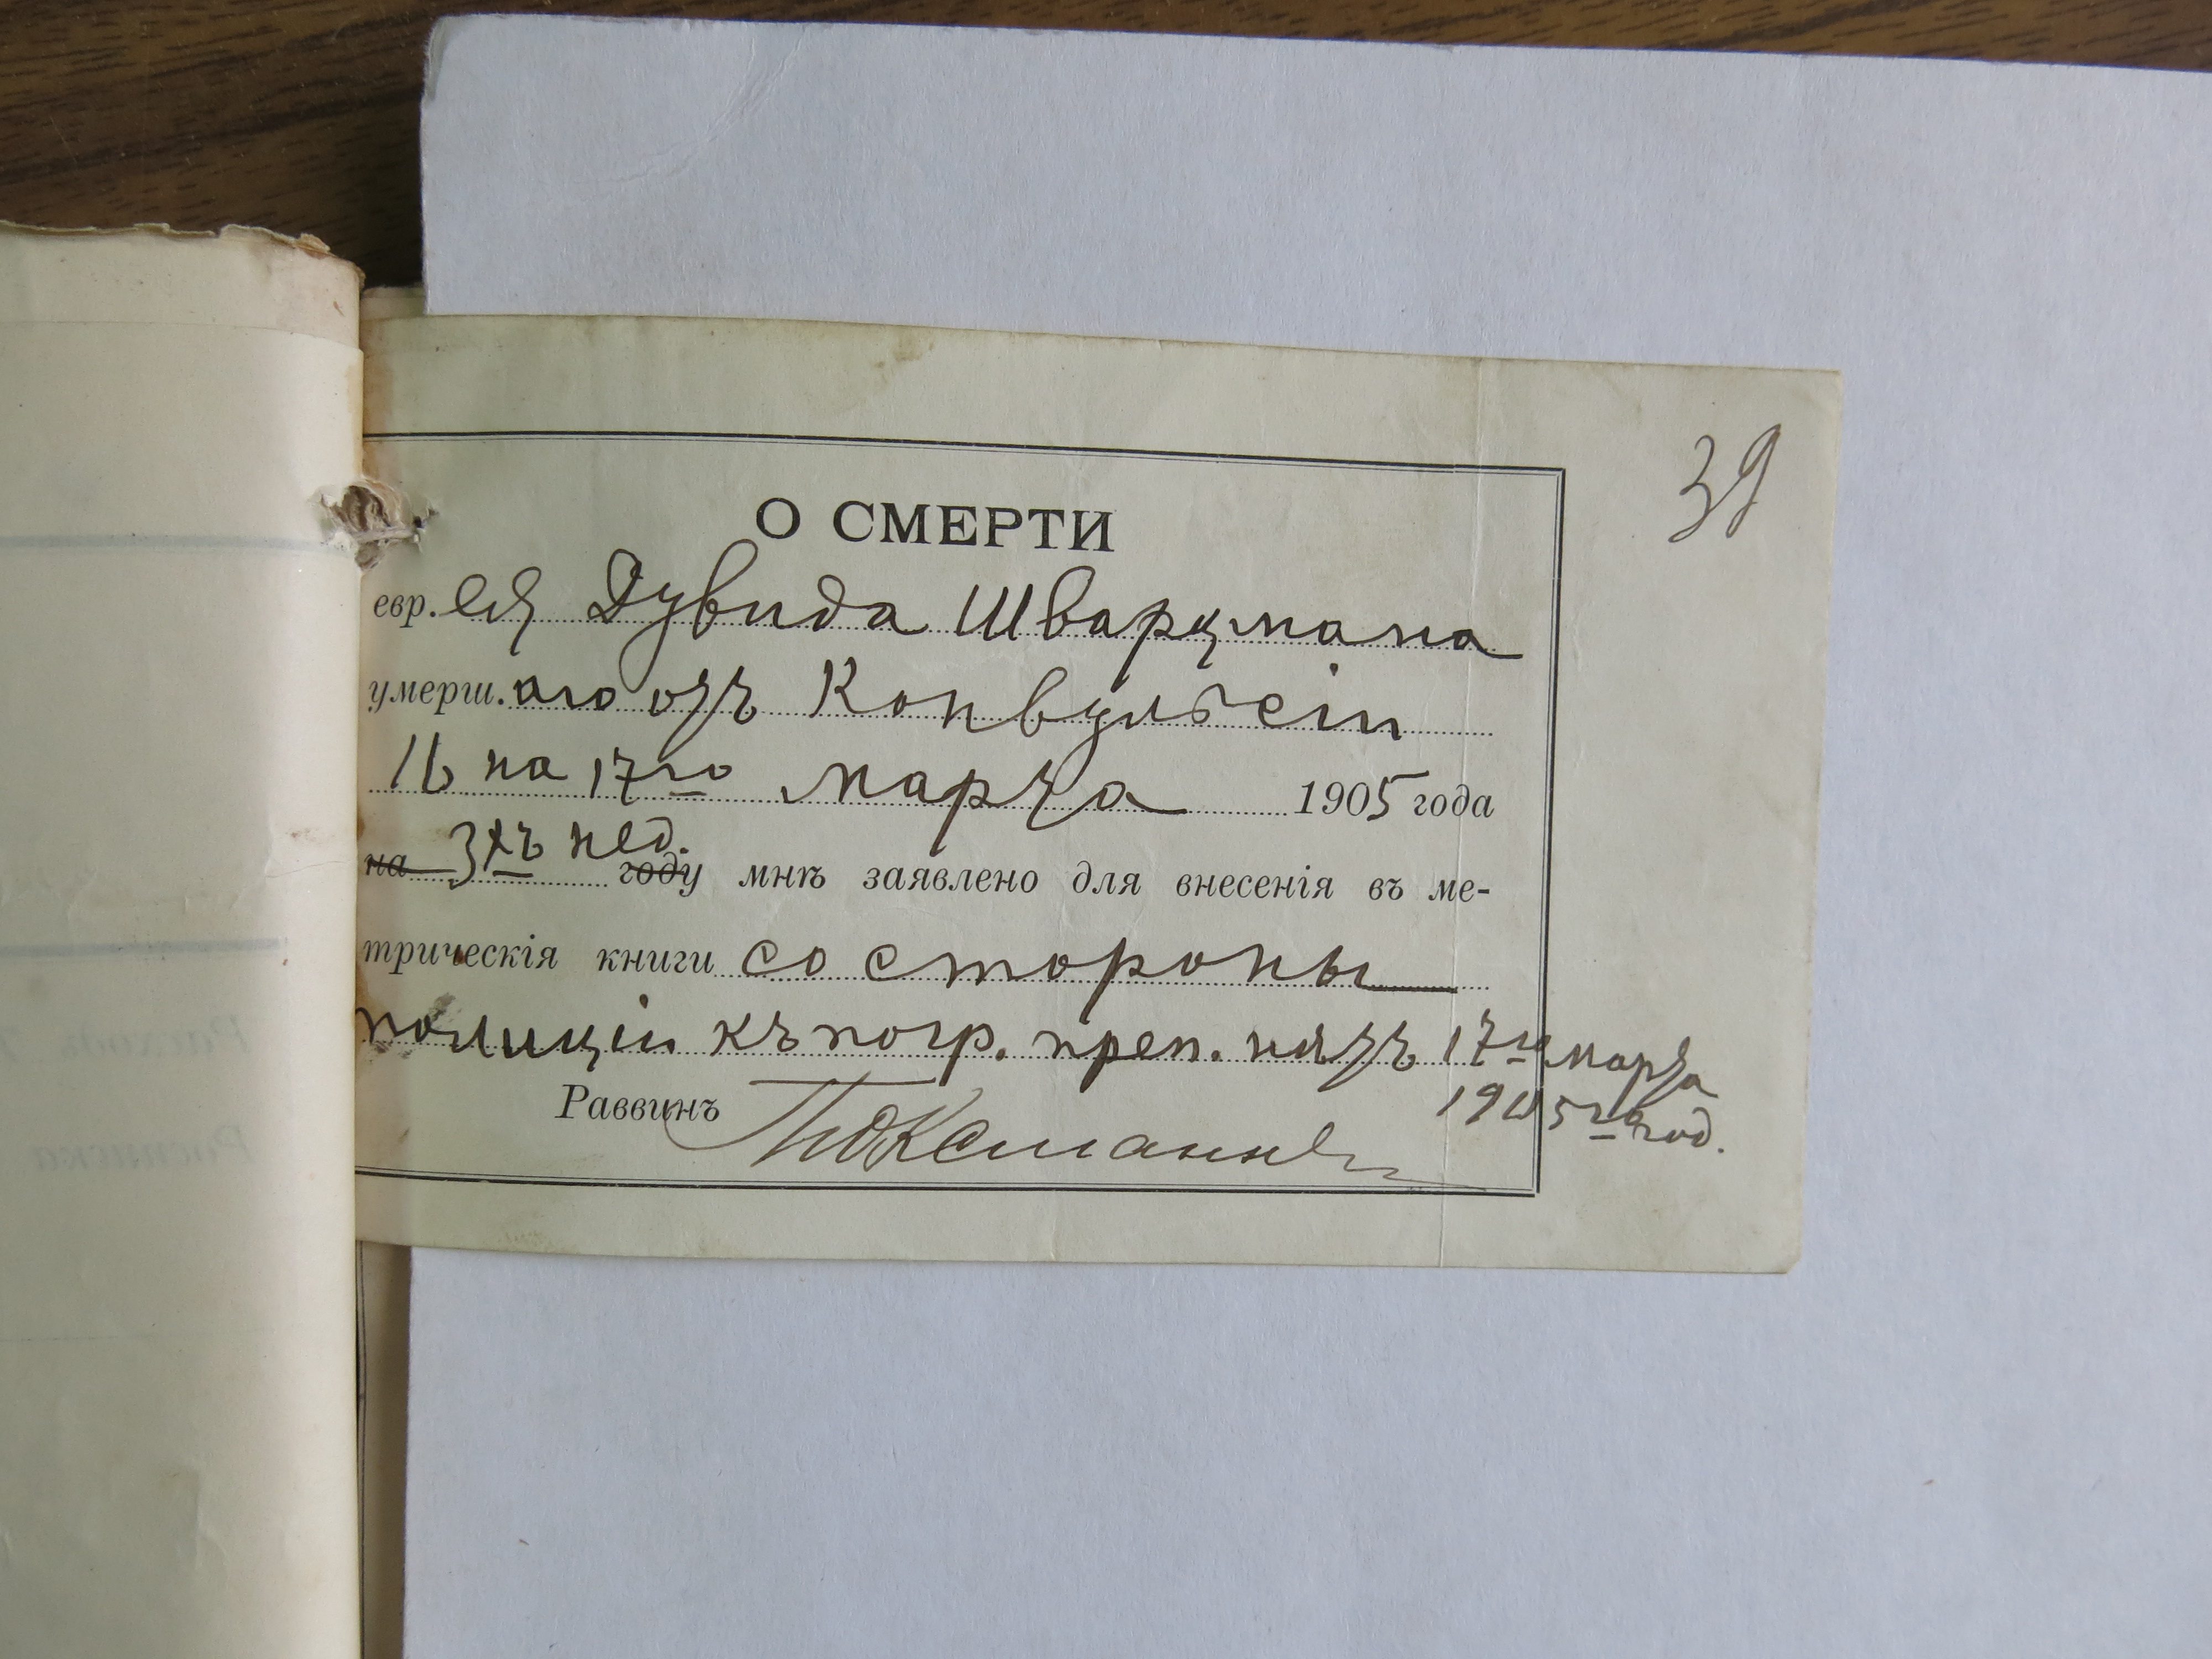 39
О СМЕРТИ
евр.ея Дувида Шварцмана
умерш.аго отъ Конвульсіи
16 на 17го марта 1905 года
на 3хъ нед. году мнѣ заявлено для внесенія въ ме-
трическія книги со стороны
полиціи къ погр. преп. нѣтъ 17го марта
Раввинъ 1905го год.